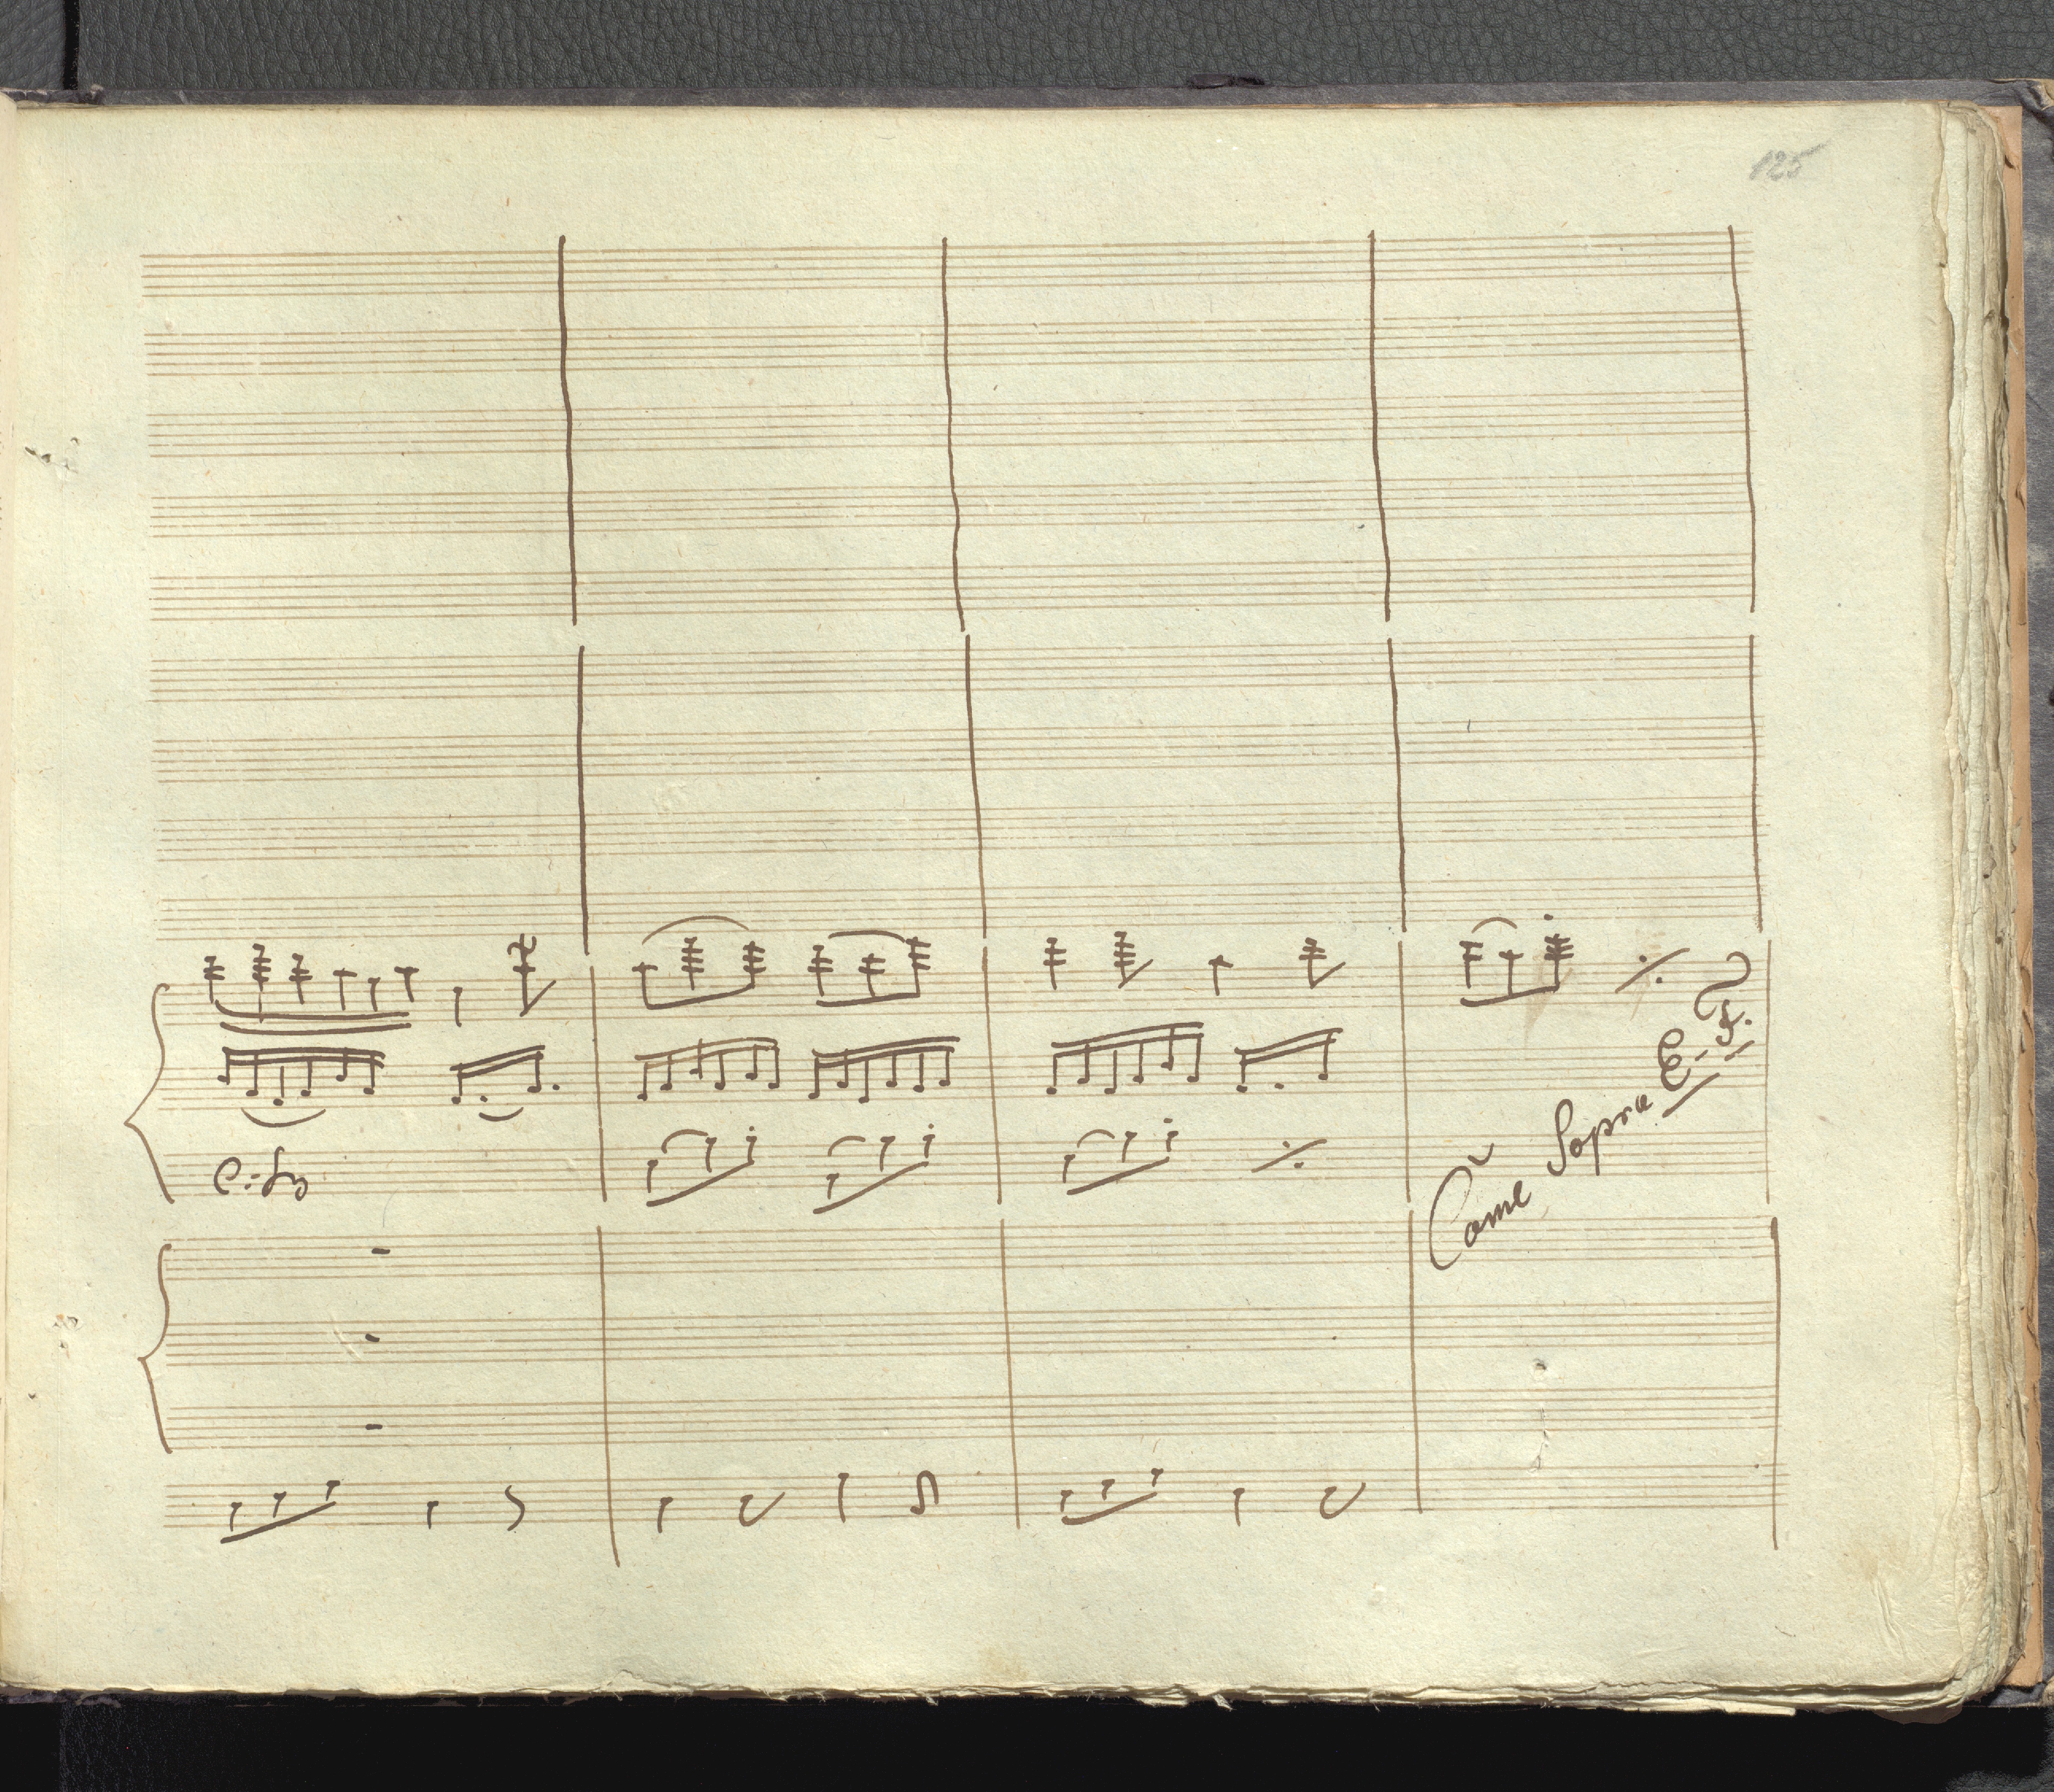 125
Come Sopra E. F.